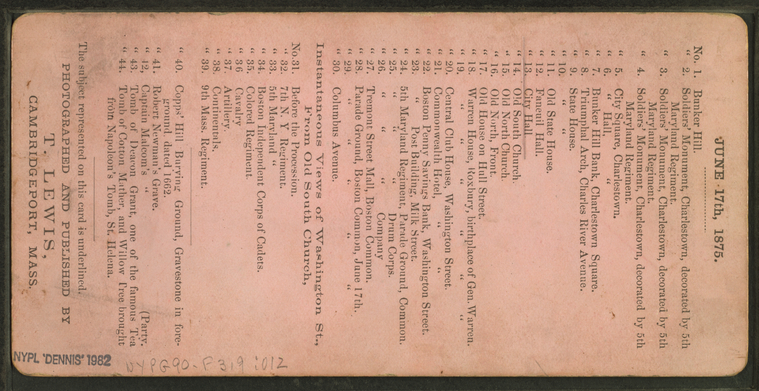 JUNE 17th, 1875.
No. 1. Bunker Hill.
" 2. Soldiers' Monument, Charlestown, decorated by 5th
Maryland Regiment.
" 3. Soldiers' Monument, Charlestown, decorated by 5th
Maryland Regiment.
" 4. Soldiers' Monument, Charlestown, decorated by 5th
Maryland Regiment.
" 5. City Square, Charlestown.
" 6. " Hall, "
" 7. Bunker Hill Bank, Charlestown Square.
" 8. Triumphal Arch, Charles River Avenue.
" 9. State House.
" 10. " "
" 11. Old State House.
" 12. Faneuil Hall.
" 13. City Hall.
" 14. Old South Church.
" 15. " North Church.
" 16. Old North, Front.
" 17. Old House on Hull Street.
" 18. Warren House, Roxbury, birthplace of Gen. Warren.
" 19. " " " " " "
" 20. Central Club House, Washington Street.
" 21. Commonwealth Hotel, " "
" 22. Boston Penny Savings Bank, Washington Street.
" 23. " Post Building, Milk Street.
" 24. 5th Maryland Regiment, Parade Ground, Common.
" 25. " " " Drum Corps.
" 26. " " " Company
" 27. Tremont Street Mall, Boston Common.
" 28. Parade Ground, Boston Common, June 17th.
" 29. " " " " " "
" 30. Columbus Avenue.
Instantaneous Views of Washington St.,
From Old South Church,
No. 31. Before the Procession.
" 32. 7th N. Y Regiment.
" 33. 5th Maryland "
" 34. Boston Independent Corps of Cadets.
" 35. Colored Regiment
" 36. Cavalry.
" 37. Artillery.
" 38. Continentals.
" 39. 9th Mass. Regiment.
" 40. Copps' Hill Burying Ground, Gravestone in fore-
ground dated 1662.
" 41. Robert Newman's Grave.
" 42. Captain Malcom's " (Party.
" 43. Tomb of Deacon Grant, one of the famous Tea
" 44. Tomb of Cotton Mather, and Willow Tree brought
from Napoleon's Tomb, St. Helena.
The subject represented on this card is underlined.
PHOTOGRAPHED AND PUBLISHED BY
T. LEWIS,
CAMBRIDGEPORT, MASS.
NYPL "DENNIS" 1982
NYPG90-F319 :012